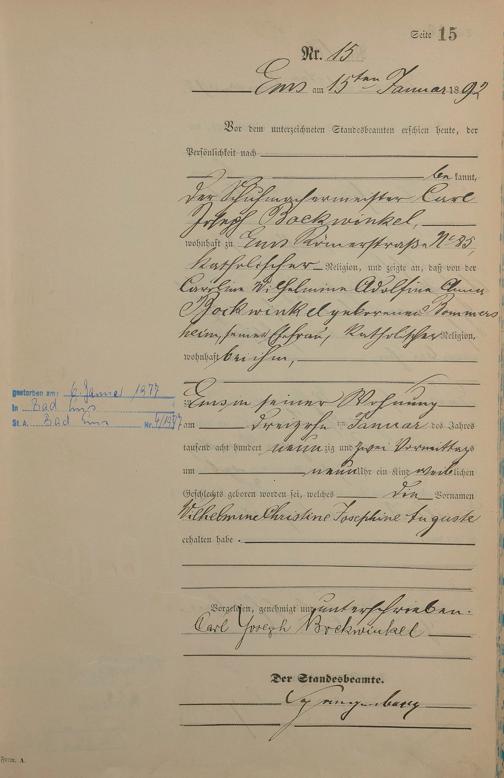 Seite 15
Nr. 15
Ems am 15ten Januar 1892
Vor dem unterzeichneten Standesbeamten erschien heute, der
Persönlichkeit nach
be kannt,
der Schuhmachermeister Carl
Joseph Bockwinkel,
wohnhaft zu Ems Römerstraße No 35,
katholischer Religion, und zeigte an, daß von der
Caroline Wilhelmine Adolfine Anna
Bockwinkel geborenen Bommers
heim, seiner Ehefrau, katholischer Religion,
wohnhaft bei ihm,
zu Ems in seiner Wohnung
am dreizehnten Januar des Jahres
tausend acht hundert neun zig und zwei Vormittags
um neun Uhr ein Kind weiblichen
Geschlechts geboren worden sei, welches die Vornamen
Wilhelmine Christine Josephine Auguste
erhalten habe.
gestorben am: 6. Januar 1977
in Bad Ems
St. A. Bad Ems Nr. 4/1977
Vorgelesen, genehmigt und unterschrieben.
Carl Joseph Bockwinkel
Der Standesbeamte.
Form. A.